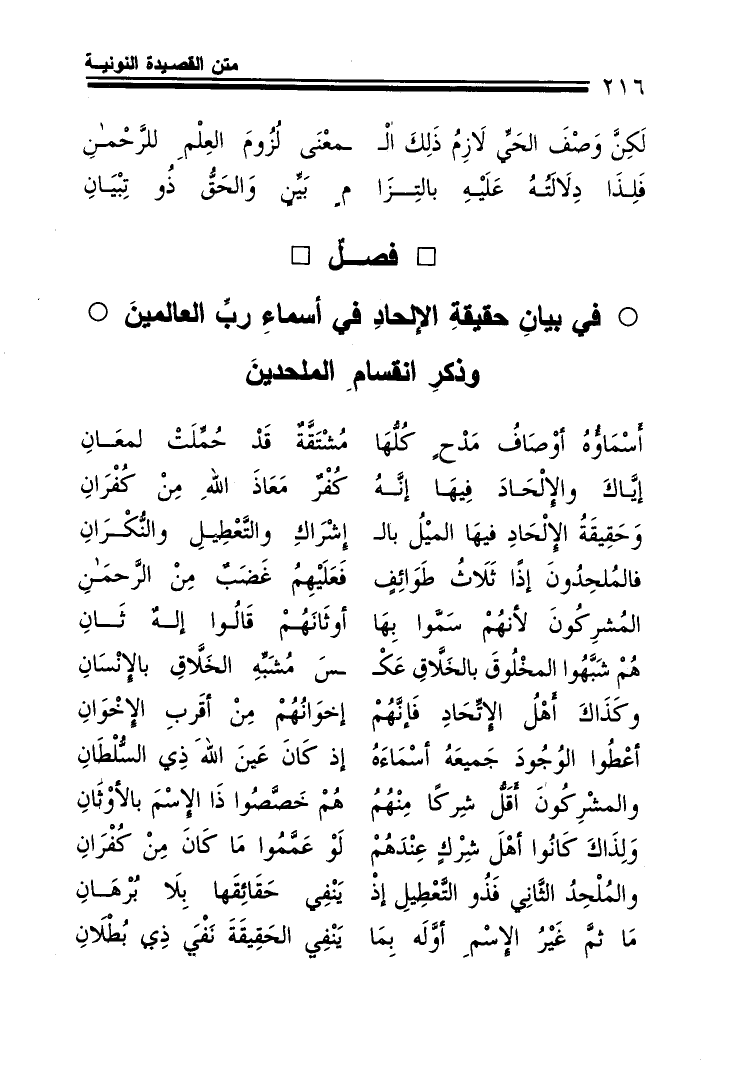 متن القصيدة النونيـة
٢١٦
لَكِنَّ وَصْفَ الحَيِّ لَازِمُ ذَلِكَ الْـ ـمعْنَى لُزُومَ العِلْمِ للرَّحْمـٰنِ
فَلِذَا دِلَالَتُـهُ عَلَيْـهِ بالتِــزَا مٍ بَيِّنٍ وَالحَقُّ ذُو تِبْيَـانِ
□ فصـــلٌ □
○ في بيانِ حقيقةِ الإلحادِ في أسماءِ ربِّ العالمينَ ○
وذكرِ انقسامِ الملحدينَ
أَسْمَاؤُهُ أوْصَافُ مَدْحٍ كُلُّهَا مُشْتَقَّةٌ قَدْ حُمِّلَتْ لمعَـانِ
إيَّاكَ والإِلْحَـادَ فِيهَـا إنَّــهُ كُفْرٌ مَعَاذَ اللهِ مِنْ كُفْرَانِ
وَحَقِيقَةُ الإِلْحَادِ فيهَا الميْلُ بالـ إشْرَاكِ والتَّعْطِيـلِ والنُّكْـرَانِ
فالمُلحِدُونَ إذًا ثَلَاثُ طَوَائِفٍ فَعَلَيْهِمُ غَضَبٌ مِنْ الرَّحمَـٰنِ
المُشرِكُونَ لأنهُمْ سَمَّوا بِهَا أوثَانَهُـمْ قَالُـوا إلـهٌ ثَــانِ
هُمْ شَبَّهُوا المخْلُوقَ بالخَلَّاقِ عَكْـ ـسَ مُشَبِّهِ الخَلَّاقِ بالإِنْسَانِ
وكَذَاكَ أهْلُ الإِتِّحَادِ فَإنَّهُمْ إخوَانُهُمْ مِنْ أقَربِ الإِخْوَانِ
أعْطُوا الوُجُودَ جَميعَهُ أسْمَاءَهُ إذ كَانَ عَينَ اللهَ ذِي السُّلْطَانِ
والمشْرِكُونَ أَقَلُّ شِركًا مِنْهُمُ هُمْ خَصَّصُوا ذَا الإِسْمَ بالأوْثَانِ
وَلِذَاكَ كَانُوا أهْلَ شِرْكٍ عِنْدَهُمْ لَوْ عَمَّمُوا مَا كَانَ مِنْ كُفْرَانِ
والمُلْحِدُ الثَّانِي فَذُو التَّعْطِيلِ إذْ يَنْفِي حَقَائِقَها بِلَا بُرْهَـانِ
مَا ثمَّ غَيْرُ الإِسْمِ أوَّلَه بِمَا يَنْفِي الحَقِيقَةَ نَفْيَ ذِي بُطْلَانِ